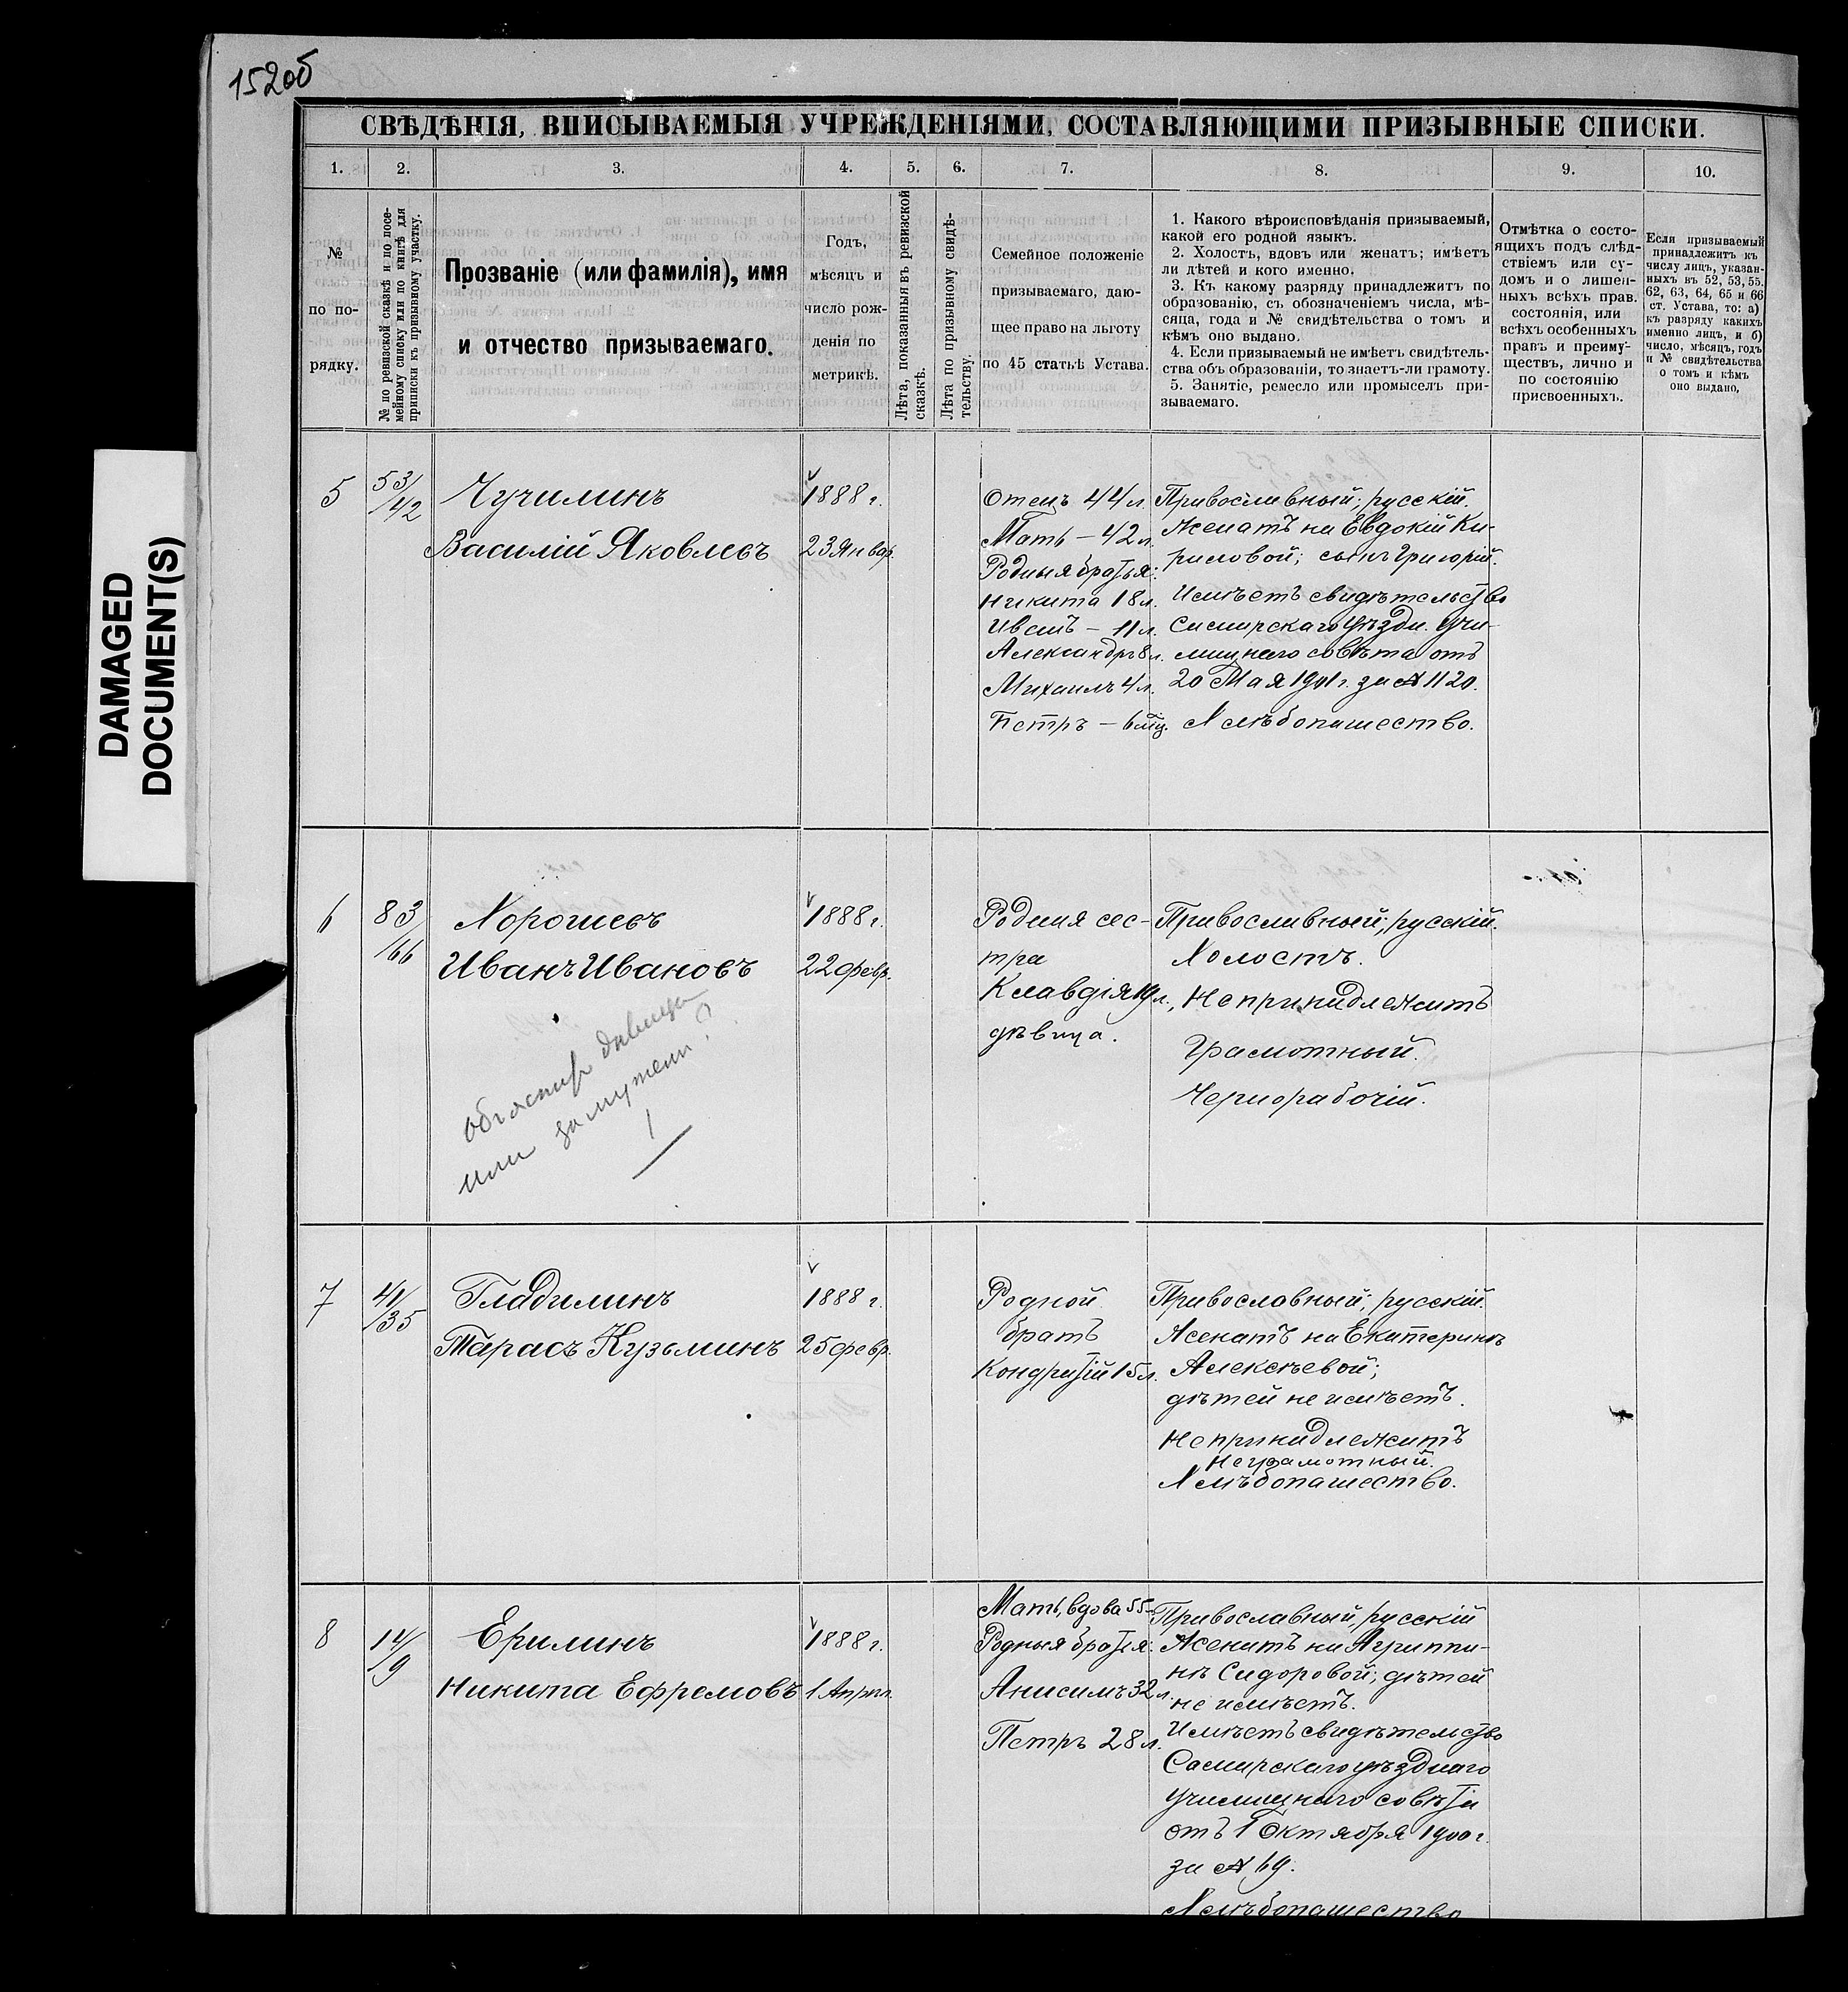 152об
DAMAGED
DOCUMENT(S)
СВѢДѢНІЯ, ВПИСЫВАЕМЫЯ УЧРЕЖДЕНІЯМИ, СОСТАВЛЯЮЩИМИ ПРИЗЫВНЫЕ СПИСКИ.
1. 2. 3. 4. 5. 6. 7. 8. 9. 10.
№
по по-
рядку.
№ по ревизской сказкѣ и по посе-
мейному списку или по книгѣ для
приписки къ призывному участку.
Прозваніе (или фамилія), имя
и отчество призываемаго.
Годъ,
мѣсяцъ и
число рож-
денія по
метрикѣ.
Лѣта, показанныя въ ревизской
сказкѣ.
Лѣта по призывному свидѣ-
тельству.
Семейное положеніе
призываемаго, даю-
щее право на льготу
по 45 статьѣ Устава.
1. Какого вѣроисповѣданія призываемый,
какой его родной языкъ.
2. Холостъ, вдовъ или женатъ; имѣетъ
ли дѣтей и кого именно.
3. Къ какому разряду принадлежитъ по
образованію, съ обозначеніемъ числа, мѣ-
сяца, года и № свидѣтельства о томъ и
кѣмъ оно выдано.
4. Если призываемый не имѣетъ свидѣтель-
ства объ образованіи, то знаетъ-ли грамоту.
5. Занятіе, ремесло или промыселъ при-
зываемаго.
Отмѣтка о состо-
ящихъ подъ слѣд-
ствіемъ или су-
домъ и о лишен-
ныхъ всѣхъ прав.
состоянія, или
всѣхъ особенныхъ
правъ и преиму-
ществъ, лично и
по состоянію
присвоенныхъ.
Если призываемый
принадлежитъ къ
числу лицъ, указан-
ныхъ въ 52, 53, 55.
62, 63, 64, 65 и 66
ст. Устава, то: а)
къ разряду какихъ
именно лицъ, и б)
число, мѣсяцъ, годъ
и № свидѣтельства
о томъ и кѣмъ
оно выдано.
5
53/42
Чучилинъ
Василій Яковлевъ
1888 г.
23 Январ.
Отецъ 44 л.
Мать – 42 л.
Родныя братья:
Никита 18 л.
Иванъ – 11 л.
Александръ 8 л.
Михаилъ 4 л.
Петръ – 6 мц.
Православный; русскій.
Женатъ на Евдокіи Ки-
риловой; сынъ Григорій.
Имѣетъ свидѣтельство
Самарскаго уѣздн. учи-
лищнаго совѣта отъ
20 Мая 1901 г. за № 1120.
Хлѣбопашество.
6
83/66
Хорошевъ
Иванъ Ивановъ
1888 г.
22 февр.
объяснить дѣвица
или замужем?
Родная сес-
тра
Клавдія 19 л.,
дѣвица.
Православный; русскій.
Холостъ.
Не принадлежитъ
Грамотный.
Чернорабочій.
7
41/35
Гладилинъ
Тарасъ Кузьминъ
1888 г.
25 февр.
Родной
братъ
Кондратій 15 л.
Православный; русскій.
Женатъ на Екатеринѣ
Алексѣевой;
дѣтей не имѣетъ.
Не принадлежитъ
Неграмотный.
Хлѣбопашество.
8
14/9
Ерилинъ
Никита Ефремовъ
1888 г.
1 Апрѣл.
Мать, вдова 55
Родныя братья:
Анисимъ 32 л.
Петръ 28 л.
Православный, русскій
Женатъ на Агриппи-
нѣ Сидоровой; дѣтей
не имѣетъ.
Имѣетъ свидѣтельство
Самарскаго уѣзднаго
училищнаго совѣта
отъ 1 Октября 1900 г.
за № 69.
Хлѣбопашество